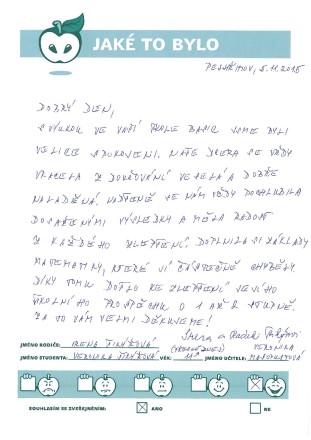 JAKÉ TO BYLO
PELHŘIMOV, 5.11.2015
DOBRÝ DEN,
S VÝUKOU VE VAŠÍ ŠKOLE BASIC JSME BYLI
VELICE SPOKOJENI. NAŠE DCERA SE VŽDY
VRACELA Z DOUČOVÁNÍ VESELÁ A DOBŘE
NALADĚNÁ. NADŠENĚ SE NÁM VŽDY POCHLUBILA
DOSAŽENÝMI VÝSLEDKY A MĚLA RADOST
Z KAŽDÉHO ZLEPŠENÍ. DOPLNILA SI ZÁKLADY
MATEMATIKY, KTERÉ JÍ ČÁSTEČNĚ CHYBĚLY
DÍKY TOMU DOŠLO KE ZLEPŠENÍ JEJÍHO
ŠKOLNÍHO PROSPĚCHU O 1 AŽ 2 STUPNĚ.
ZA TO VÁM VELMI DĚKUJEME!
Irena a Radek
JMÉNO RODIČE: IRENA
JMÉNO STUDENTA: VERONIKA VĚK: 11 JMÉNO UČITELE: VERONIKA
SOUHLASÍM SE ZVEŘEJNĚNÍM: ANO NE